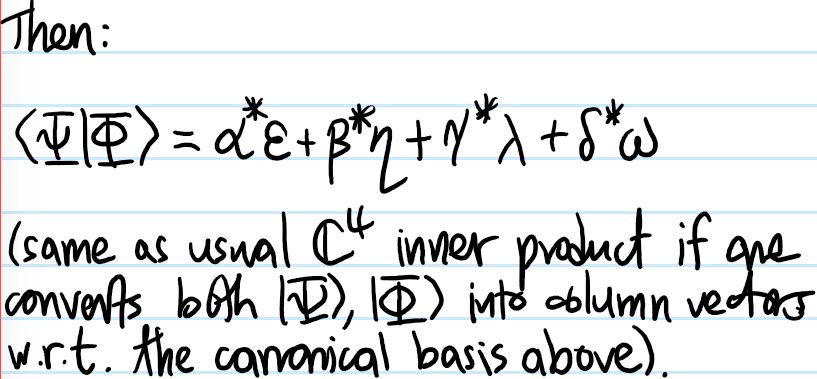 Then:
⟨Ψ|Φ⟩ = α*ε + β*η + γ*λ + δ*ω
(same as usual ℂ⁴ inner product if one
converts both |Ψ⟩, |Φ⟩ into column vectors
w.r.t. the canonical basis above).